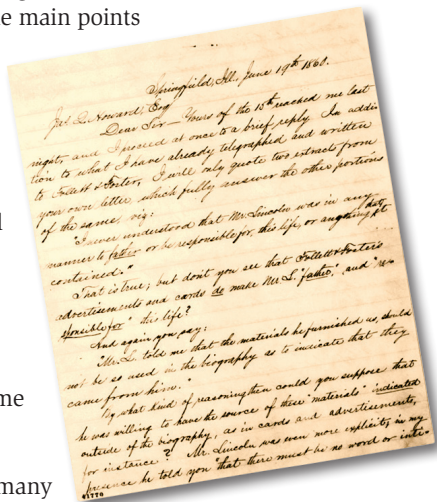 e main points
Springfield, Ill. June 19th 1860.
Jas. Q. Howard, Esq
Dear Sir— Yours of the 15th reached me last
night, and I proceed at once to a brief reply. In addi
tion to what I have already telegraphed and written
to Follett & Foster, I will only quote two extracts from
your own letter, which fully answer the other portions
of the same, viz:
"I never understood that Mr. Lincoln was in any
manner to father or be responsible for, this life, or anything it
contained."
That is true; but don't you see that Follett & Foster's
advertisements and cards do make Mr. L. "father," and "re-
sponsible for" this life?
And again you say:
"Mr. L. told me that the materials he furnished us, should
not be so used in the biography as to indicate that they
came from him."
By what kind of reasoning then could you suppose that
he was willing to have the source of these "materials" indicated
outside of the biography, as in cards and advertisements,
for instance? Mr. Lincoln was even more explicit; in my
presence he told you "that there must be no word or inti-
me
many